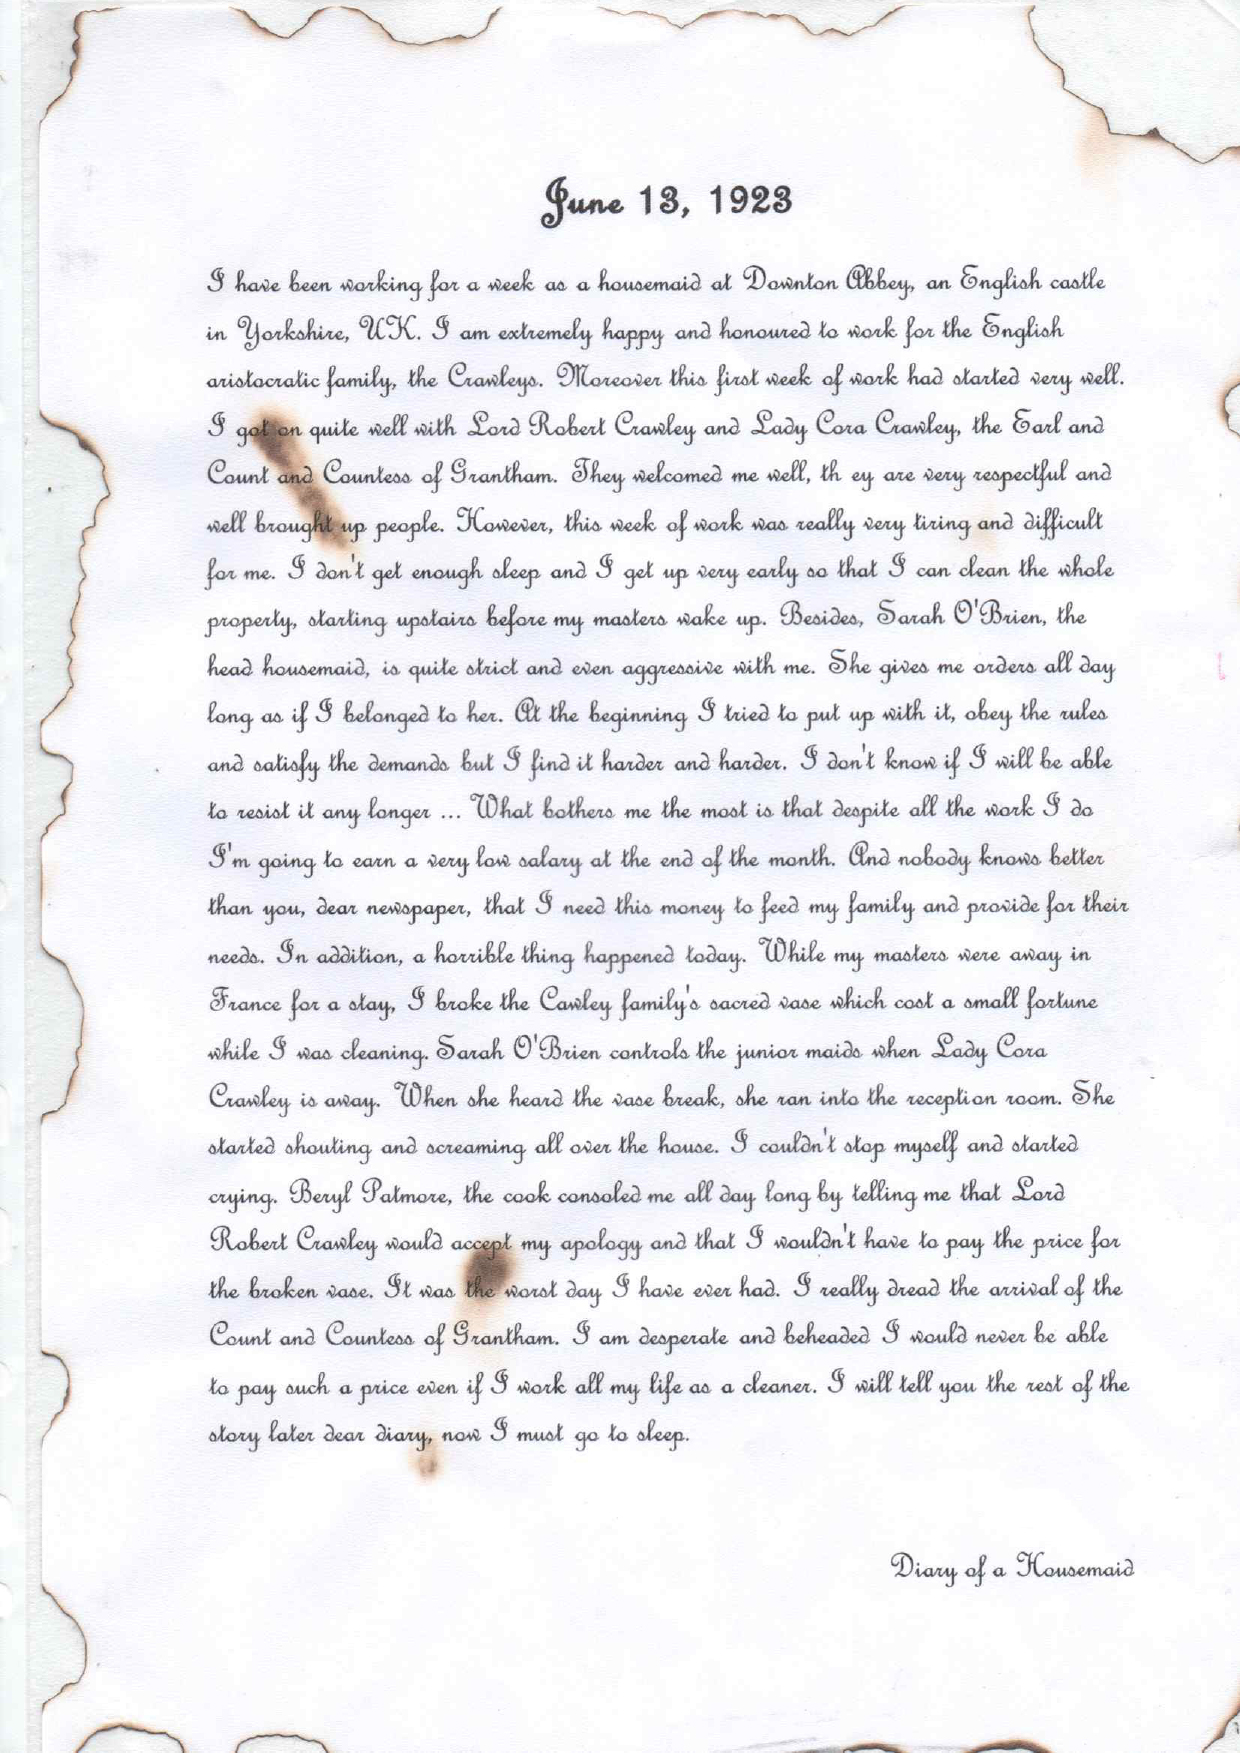 June 13, 1923
I have been working for a week as a housemaid at Downton Abbey, an English castle
in Yorkshire, UK. I am extremely happy and honoured to work for the English
aristocratic family, the Crawleys. Moreover this first week of work had started very well.
I got on quite well with Lord Robert Crawley and Lady Cora Crawley, the Earl and
Count and Countess of Grantham. They welcomed me well, th ey are very respectful and
well brought up people. However, this week of work was really very tiring and difficult
for me. I don't get enough sleep and I get up very early so that I can clean the whole
property, starting upstairs before my masters wake up. Besides, Sarah O'Brien, the
head housemaid, is quite strict and even aggressive with me. She gives me orders all day
long as if I belonged to her. At the beginning I tried to put up with it, obey the rules
and satisfy the demands but I find it harder and harder. I don't know if I will be able
to resist it any longer ... What bothers me the most is that despite all the work I do
I'm going to earn a very low salary at the end of the month. And nobody knows better
than you, dear newspaper, that I need this money to feed my family and provide for their
needs. In addition, a horrible thing happened today. While my masters were away in
France for a stay, I broke the Cawley family's sacred vase which cost a small fortune
while I was cleaning. Sarah O'Brien controls the junior maids when Lady Cora
Crawley is away. When she heard the vase break, she ran into the reception room. She
started shouting and screaming all over the house. I couldn't stop myself and started
crying. Beryl Patmore, the cook consoled me all day long by telling me that Lord
Robert Crawley would accept my apology and that I wouldn't have to pay the price for
the broken vase. It was the worst day I have ever had. I really dread the arrival of the
Count and Countess of Grantham. I am desperate and beheaded I would never be able
to pay such a price even if I work all my life as a cleaner. I will tell you the rest of the
story later dear diary, now I must go to sleep.
Diary of a Housemaid